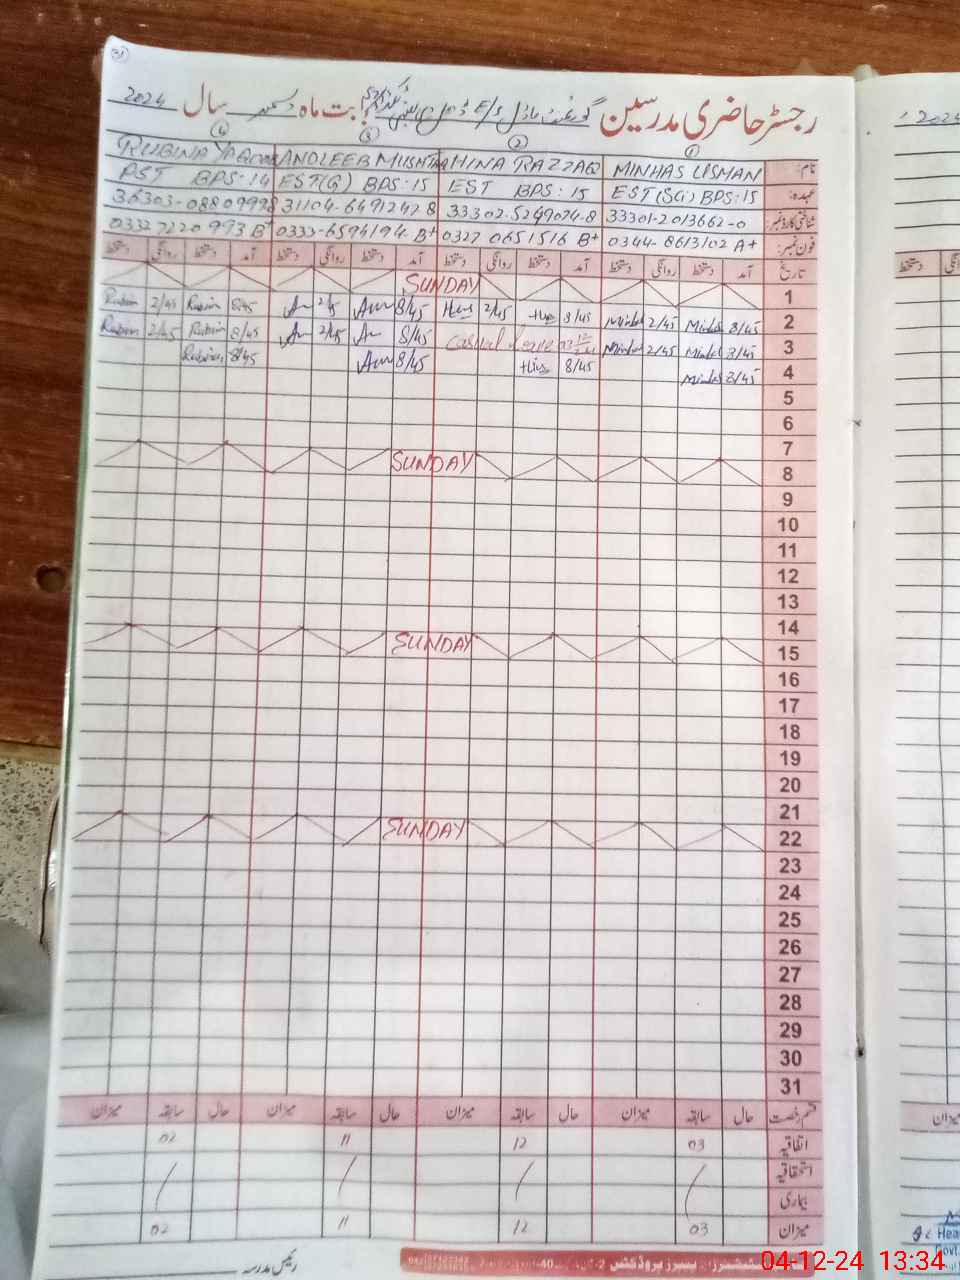 31
رجسٹر حاضری مدرسین گورنمنٹ ماڈل بابت ماہ دسمبر سال 2024
① ② ③ ④
نام: MINHAS USMAN HINA RAZZAQ ANDLEEB MUSHTAQ RUBINA YAQOOB
عہدہ: EST(SG) BPS:15 EST BPS:15 EST(G) BPS:15 PST BPS:14
شناختی کارڈ نمبر: 33301-2013662-0 33302-5249074-8 31104-6491247-8 36303-0880999-8
فون نمبر: 0344-8613102 A+ 0327 0651516 B+ 0333-6594194 B+ 0332 7220993 B+
تاریخ آمد دستخط روانگی دستخط آمد دستخط روانگی دستخط آمد دستخط روانگی دستخط آمد دستخط روانگی دستخط
1 SUNDAY
2 8/45 Minhas 2/45 Minhas 8/45 Hina 2/45 Hina 8/45 2/45 8/45 Rubina 2/45 Rubina
3 8/45 Minhas 2/45 Minhas Casual Leave 8/45 2/45 8/45 Rubina 2/45 Rubina
4 8/45 Minhas 8/45 Hina 8/45 8/45 Rubina
5
6
7
8 SUNDAY
9
10
11
12
13
14
15 SUNDAY
16
17
18
19
20
21
22 SUNDAY
23
24
25
26
27
28
29
30
31
قسم رخصت حال سابقہ میزان حال سابقہ میزان حال سابقہ میزان حال سابقہ میزان
اتفاقیہ 03 12 11 02
استحقاقیہ
بیماری
میزان 03 12 11 02
رئیس مدرسہ
04-12-24 13:34
2024
دستخط
میزان
Hea
Govt.